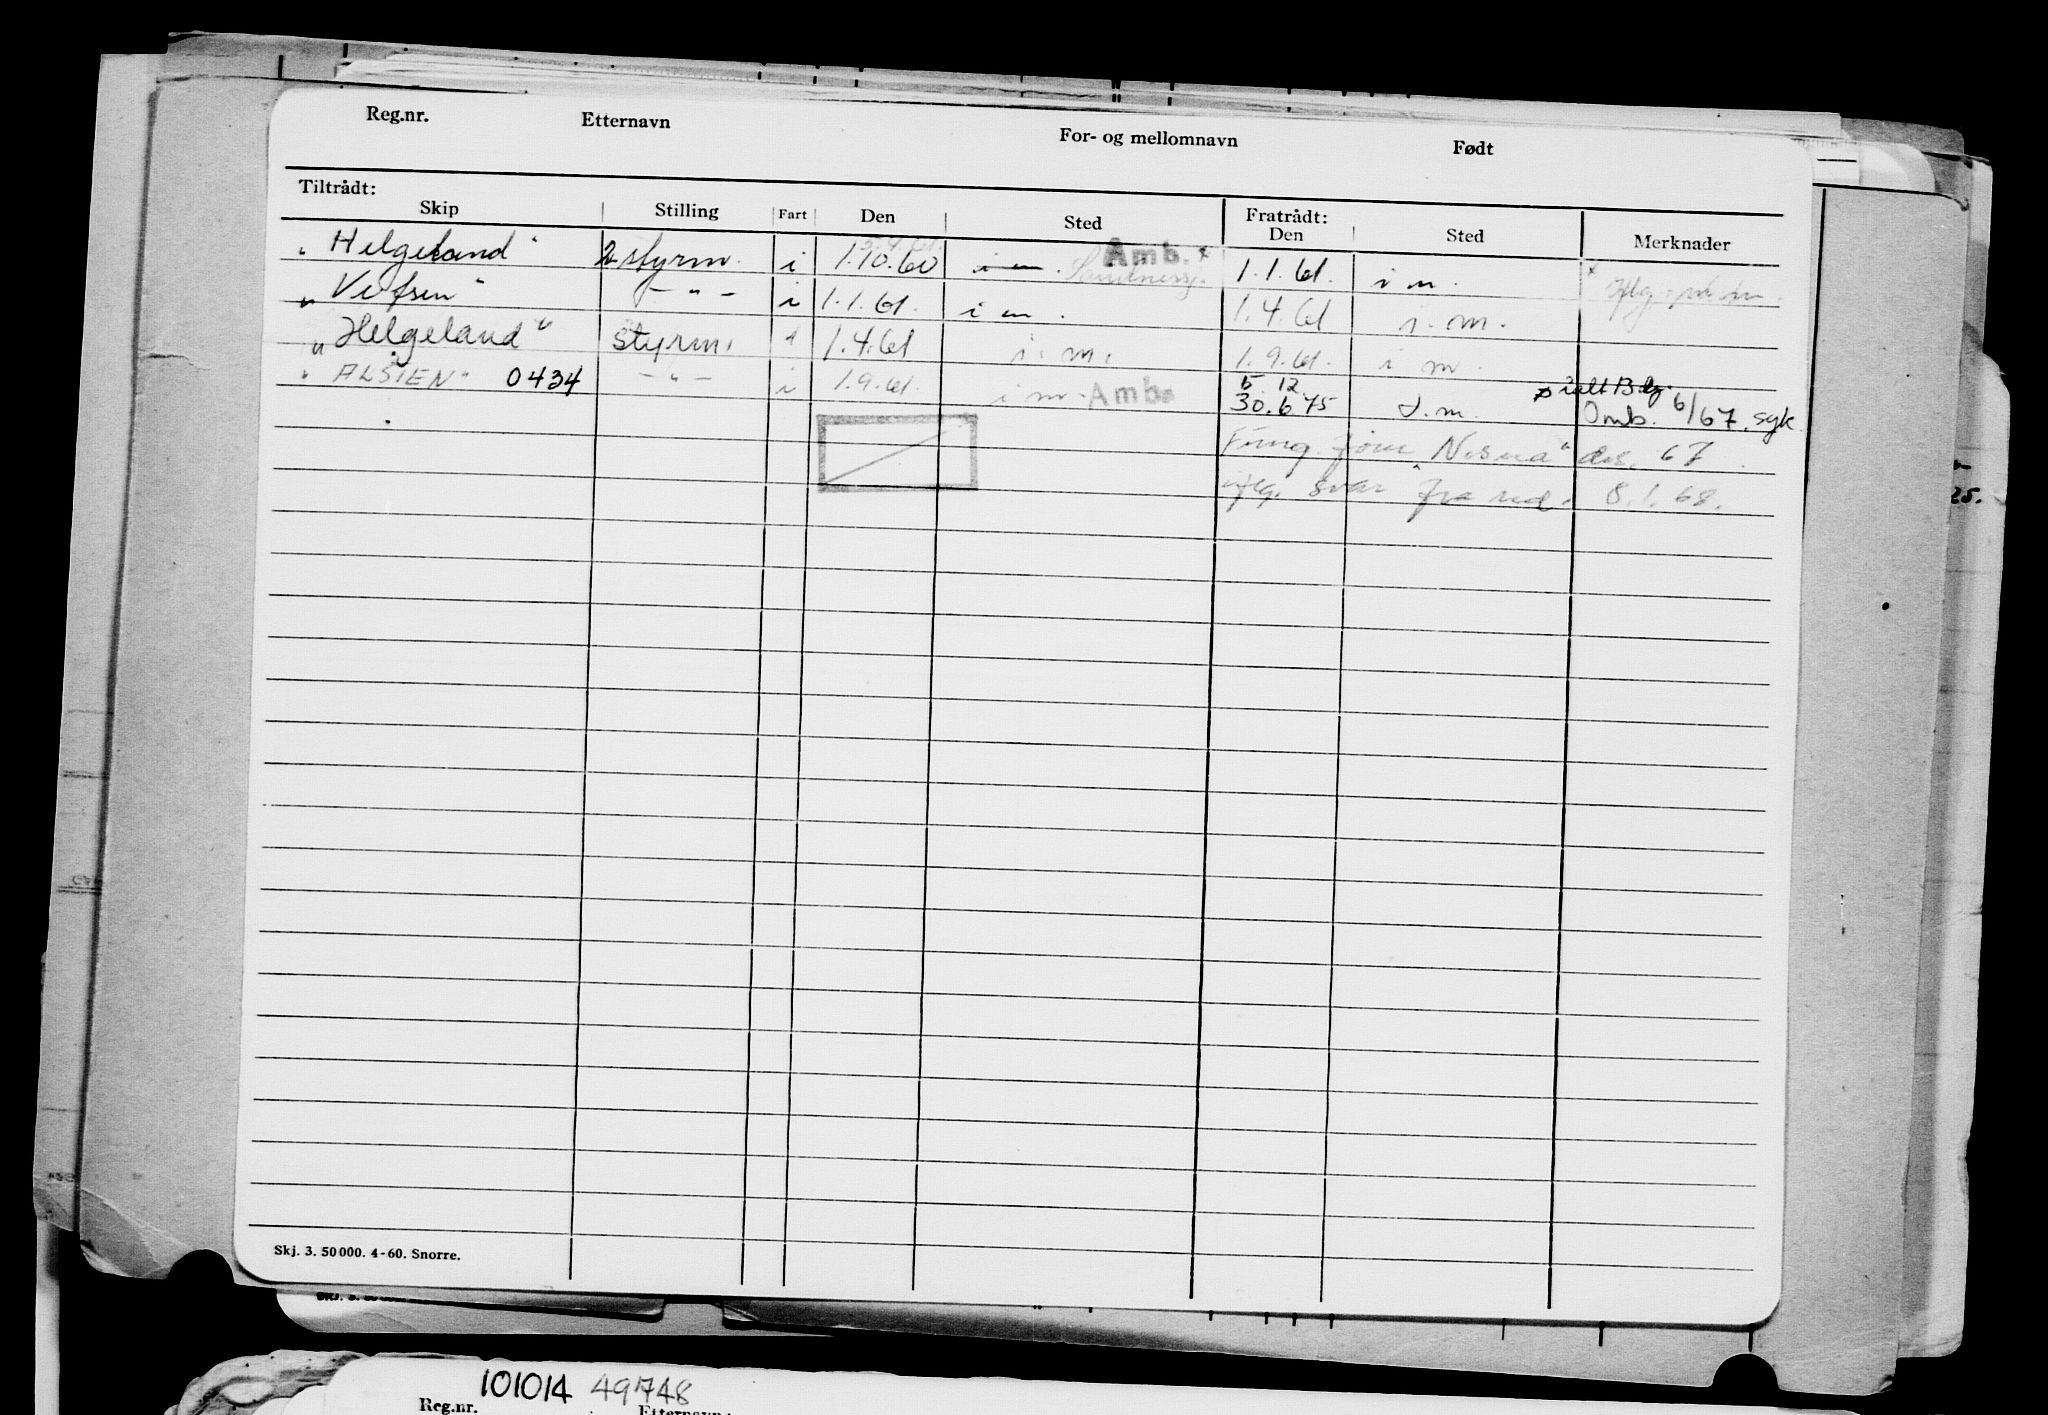 Reg.nr. Etternavn For- og mellomnavn Født
Tiltrådt: Fratrådt:
Skip Stilling Fart Den Sted Den Sted Merknader
"Helgeland" 2 styrm. i 1.10.60 i m. Amb. x 1.1.61. i m.
"Vefsen" - " - i 1.1.61. i m. 1.4.61 i. m.
"Helgeland" styrm. i 1.4.61 i. m. 1.9.61. i m.
"ALSTEN" 0434 - " - i 1.9.61. i m. Amb. 5.12
30.6.75 i.m. Omb. 6/67, syk.
des. 67
svar fra red. 8.1.68.
Skj. 3. 50000. 4-60. Snorre.
101014 49748
Reg.nr. Etternavn